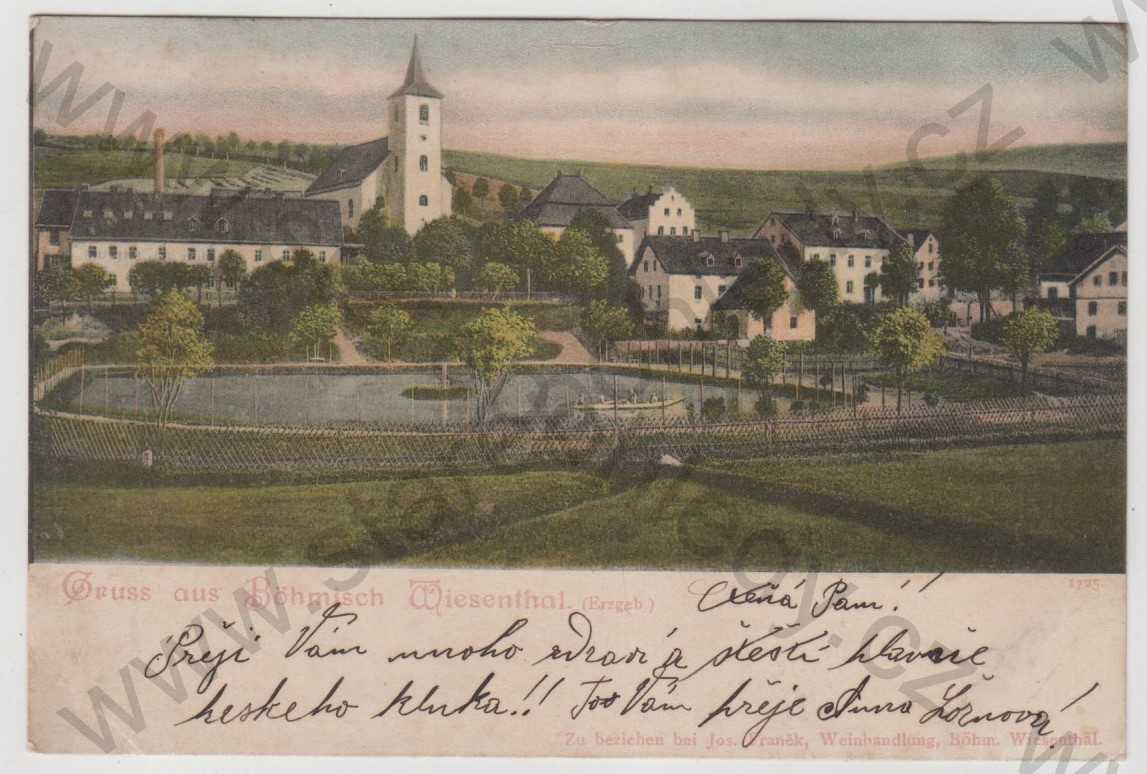 Gruss aus Böhmisch Wiesenthal. (Erzgeb.)
1725.
Ctená Paní!
Přeji Vám mnoho zdraví a štěstí hlavně
heskeho kluka!! Too Vám přeje Anna Ložnová!
Zu beziehen bei Jos. Franěk, Weinhandlung, Böhm. Wiesenthal.